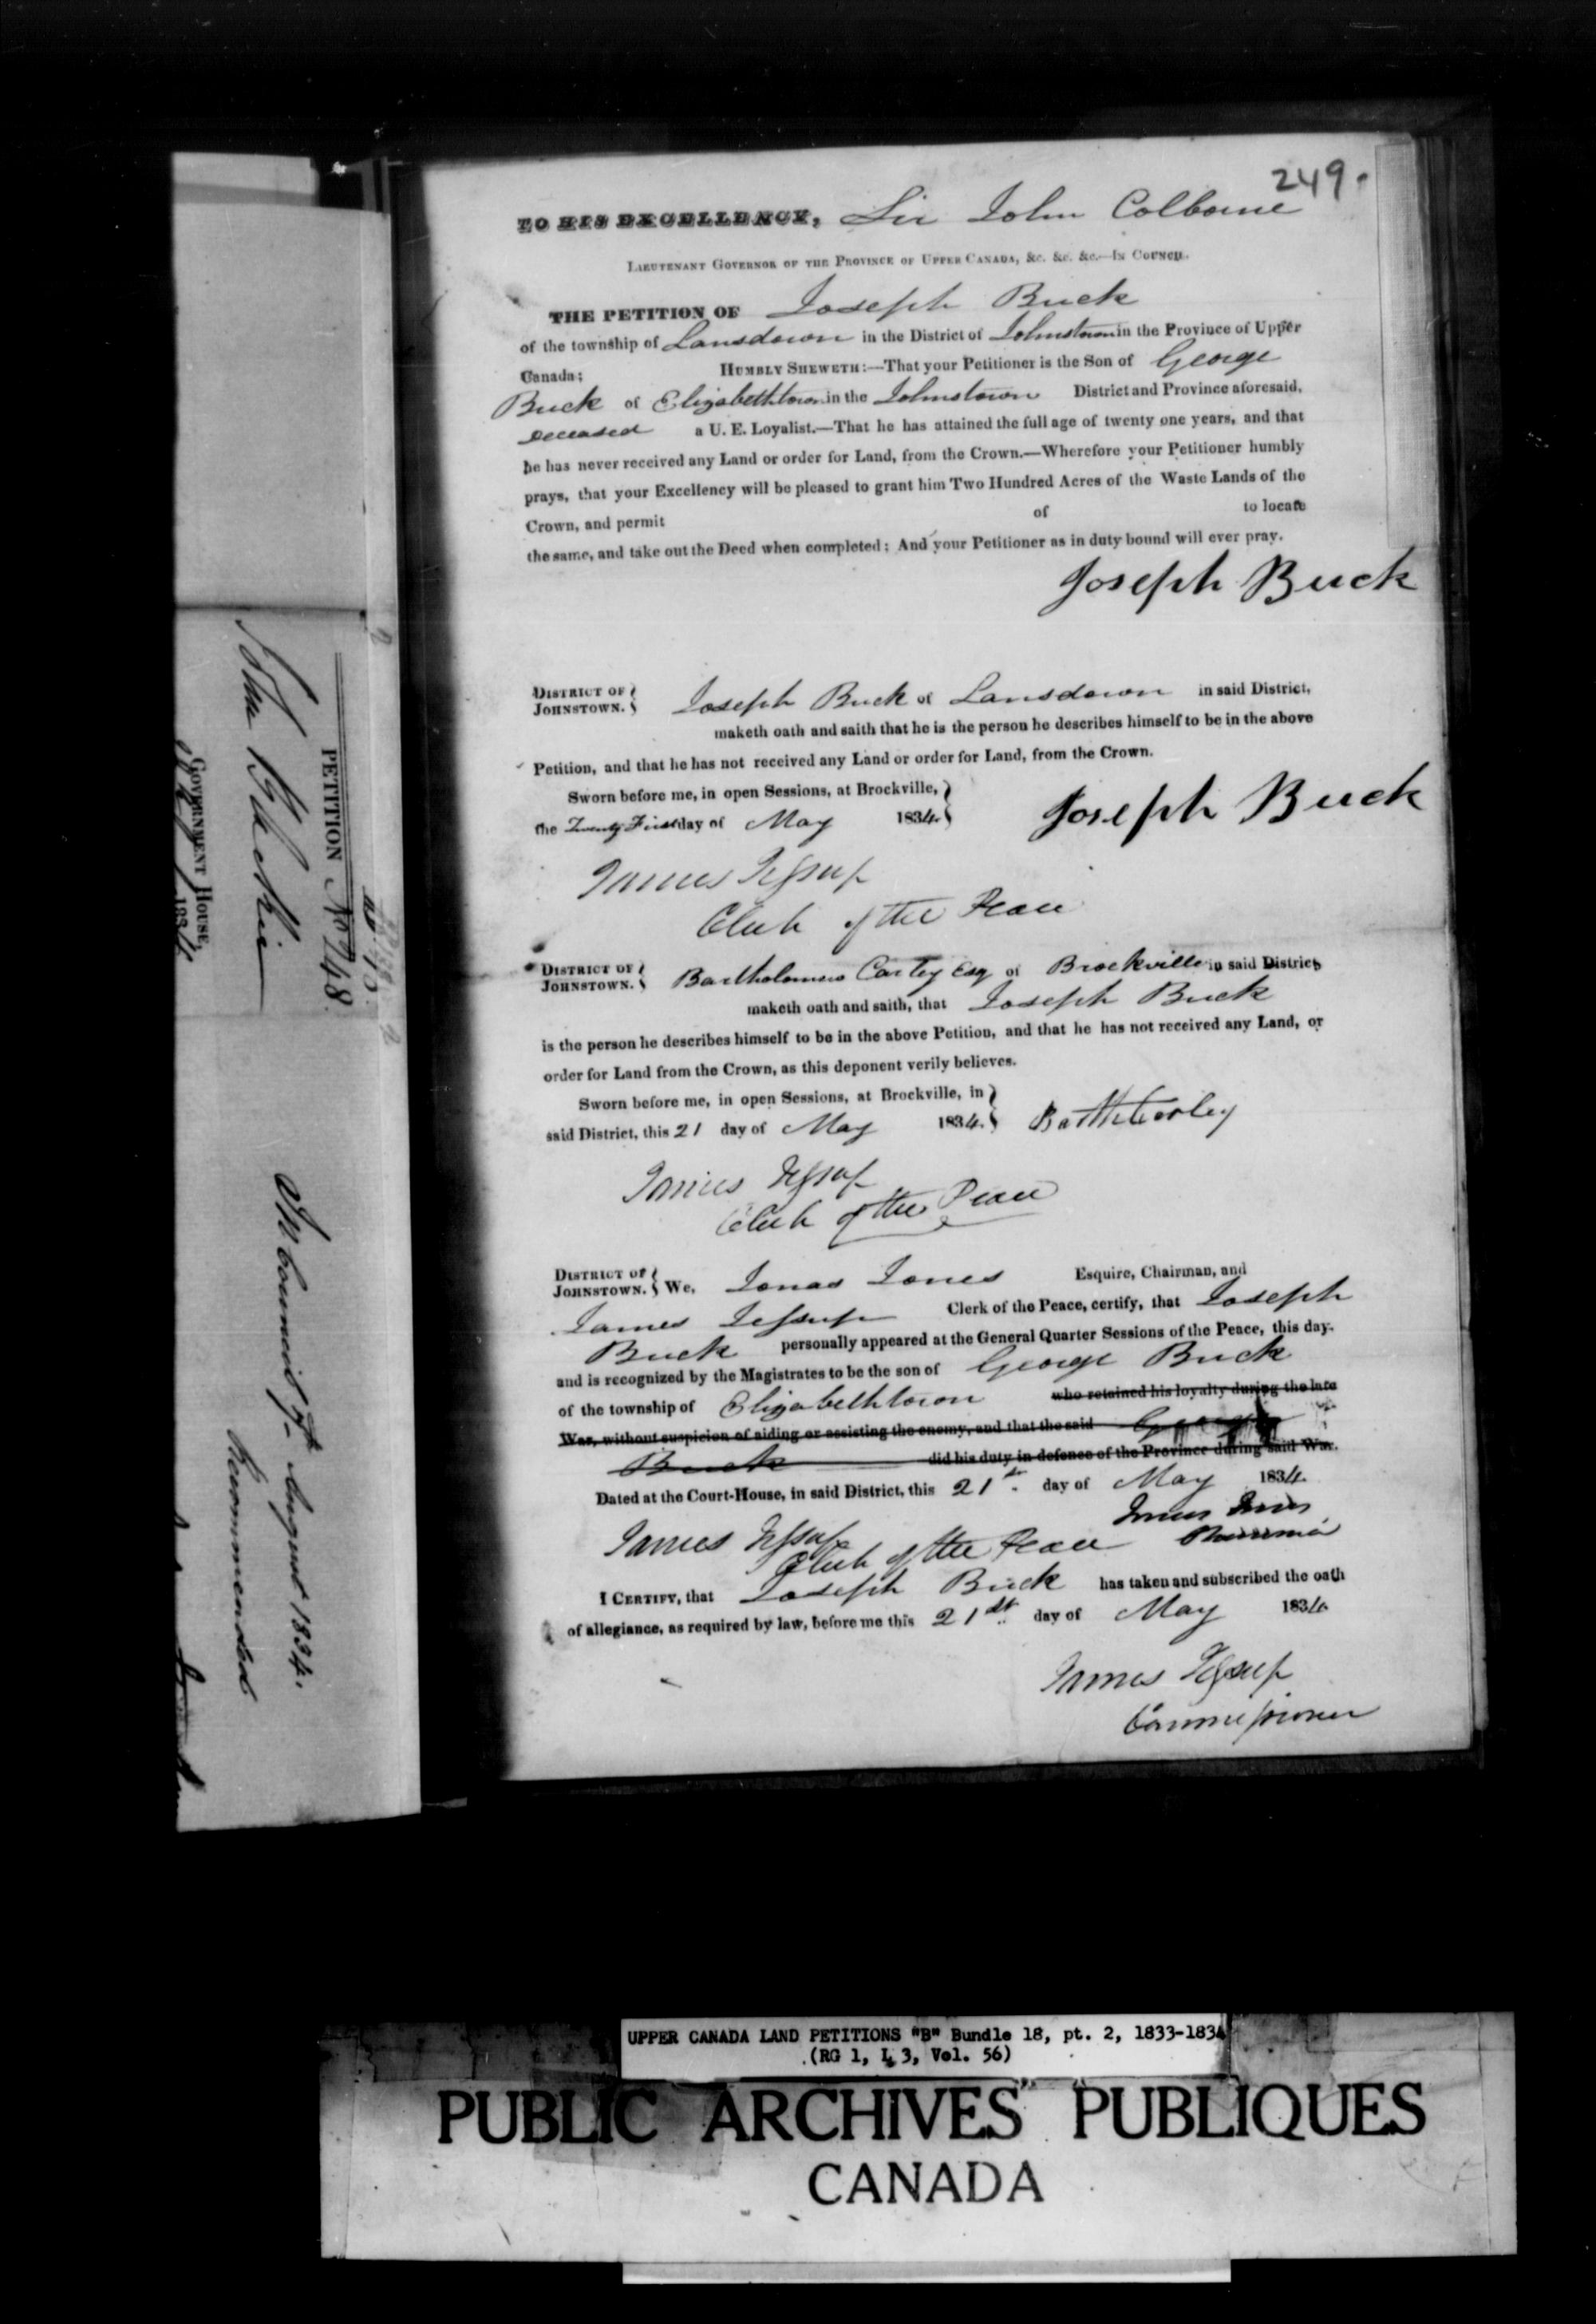 249.
TO HIS EXCELLENCY, Sir John Colborne
LIEUTENANT GOVERNOR OF THE PROVINCE OF UPPER CANADA, &c. &c. &c.—IN COUNCIL.
THE PETITION OF Joseph Buck
of the township of Lansdown in the District of Johnstown in the Province of Upper
Canada; HUMBLY SHEWETH:—That your Petitioner is the Son of George
Buck of Elizabethtown in the Johnstown District and Province aforesaid,
deceased a U. E. Loyalist.—That he has attained the full age of twenty one years, and that
he has never received any Land or order for Land, from the Crown.—Wherefore your Petitioner humbly
prays, that your Excellency will be pleased to grant him Two Hundred Acres of the Waste Lands of the
Crown, and permit of to locate
the same, and take out the Deed when completed; And your Petitioner as in duty bound will ever pray.
Joseph Buck
DISTRICT OF
JOHNSTOWN. Joseph Buck of Lansdown in said District,
maketh oath and saith that he is the person he describes himself to be in the above
Petition, and that he has not received any Land or order for Land, from the Crown.
Sworn before me, in open Sessions, at Brockville,
the Twenty First day of May 1834. Joseph Buck
James Jessup
Clerk of the Peace
DISTRICT OF
JOHNSTOWN. Bartholomew Carley Esq of Brockville in said District,
maketh oath and saith, that Joseph Buck
is the person he describes himself to be in the above Petition, and that he has not received any Land, or
order for Land from the Crown, as this deponent verily believes.
Sworn before me, in open Sessions, at Brockville, in
said District, this 21 day of May 1834. Barth Carley
James Jessup
Clerk of the Peace
DISTRICT OF
JOHNSTOWN. We, Jonas Jones Esquire, Chairman, and
James Jessup Clerk of the Peace, certify, that Joseph
Buck personally appeared at the General Quarter Sessions of the Peace, this day.
and is recognized by the Magistrates to be the son of George Buck
of the township of Elizabethtown who retained his loyalty during the late
War, without suspicion of aiding or assisting the enemy, and that the said George
Buck did his duty in defence of the Province during said War.
Dated at the Court-House, in said District, this 21st day of May 1834.
Jonas Jones
Chairman
James Jessup
Clerk of the Peace
I CERTIFY, that Joseph Buck has taken and subscribed the oath
of allegiance, as required by law, before me this 21st day of May 1834
James Jessup
Commissioner
PETITION No 248
GOVERNMENT HOUSE,
In Council 7th August 1834.
Recommended
UPPER CANADA LAND PETITIONS "B" Bundle 18, pt. 2, 1833-1834
(RG 1, L 3, Vol. 56)
PUBLIC ARCHIVES PUBLIQUES
CANADA